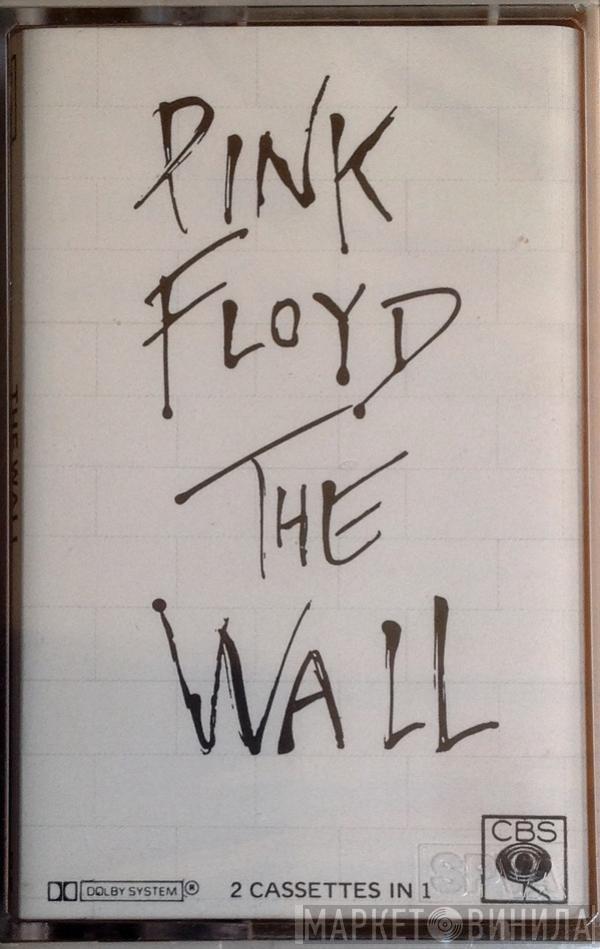 PINK
FLOYD
THE
WALL
THE WALL
CBS
DOLBY SYSTEM®
2 CASSETTES IN 1
МАРКЕТ ВИНИЛА